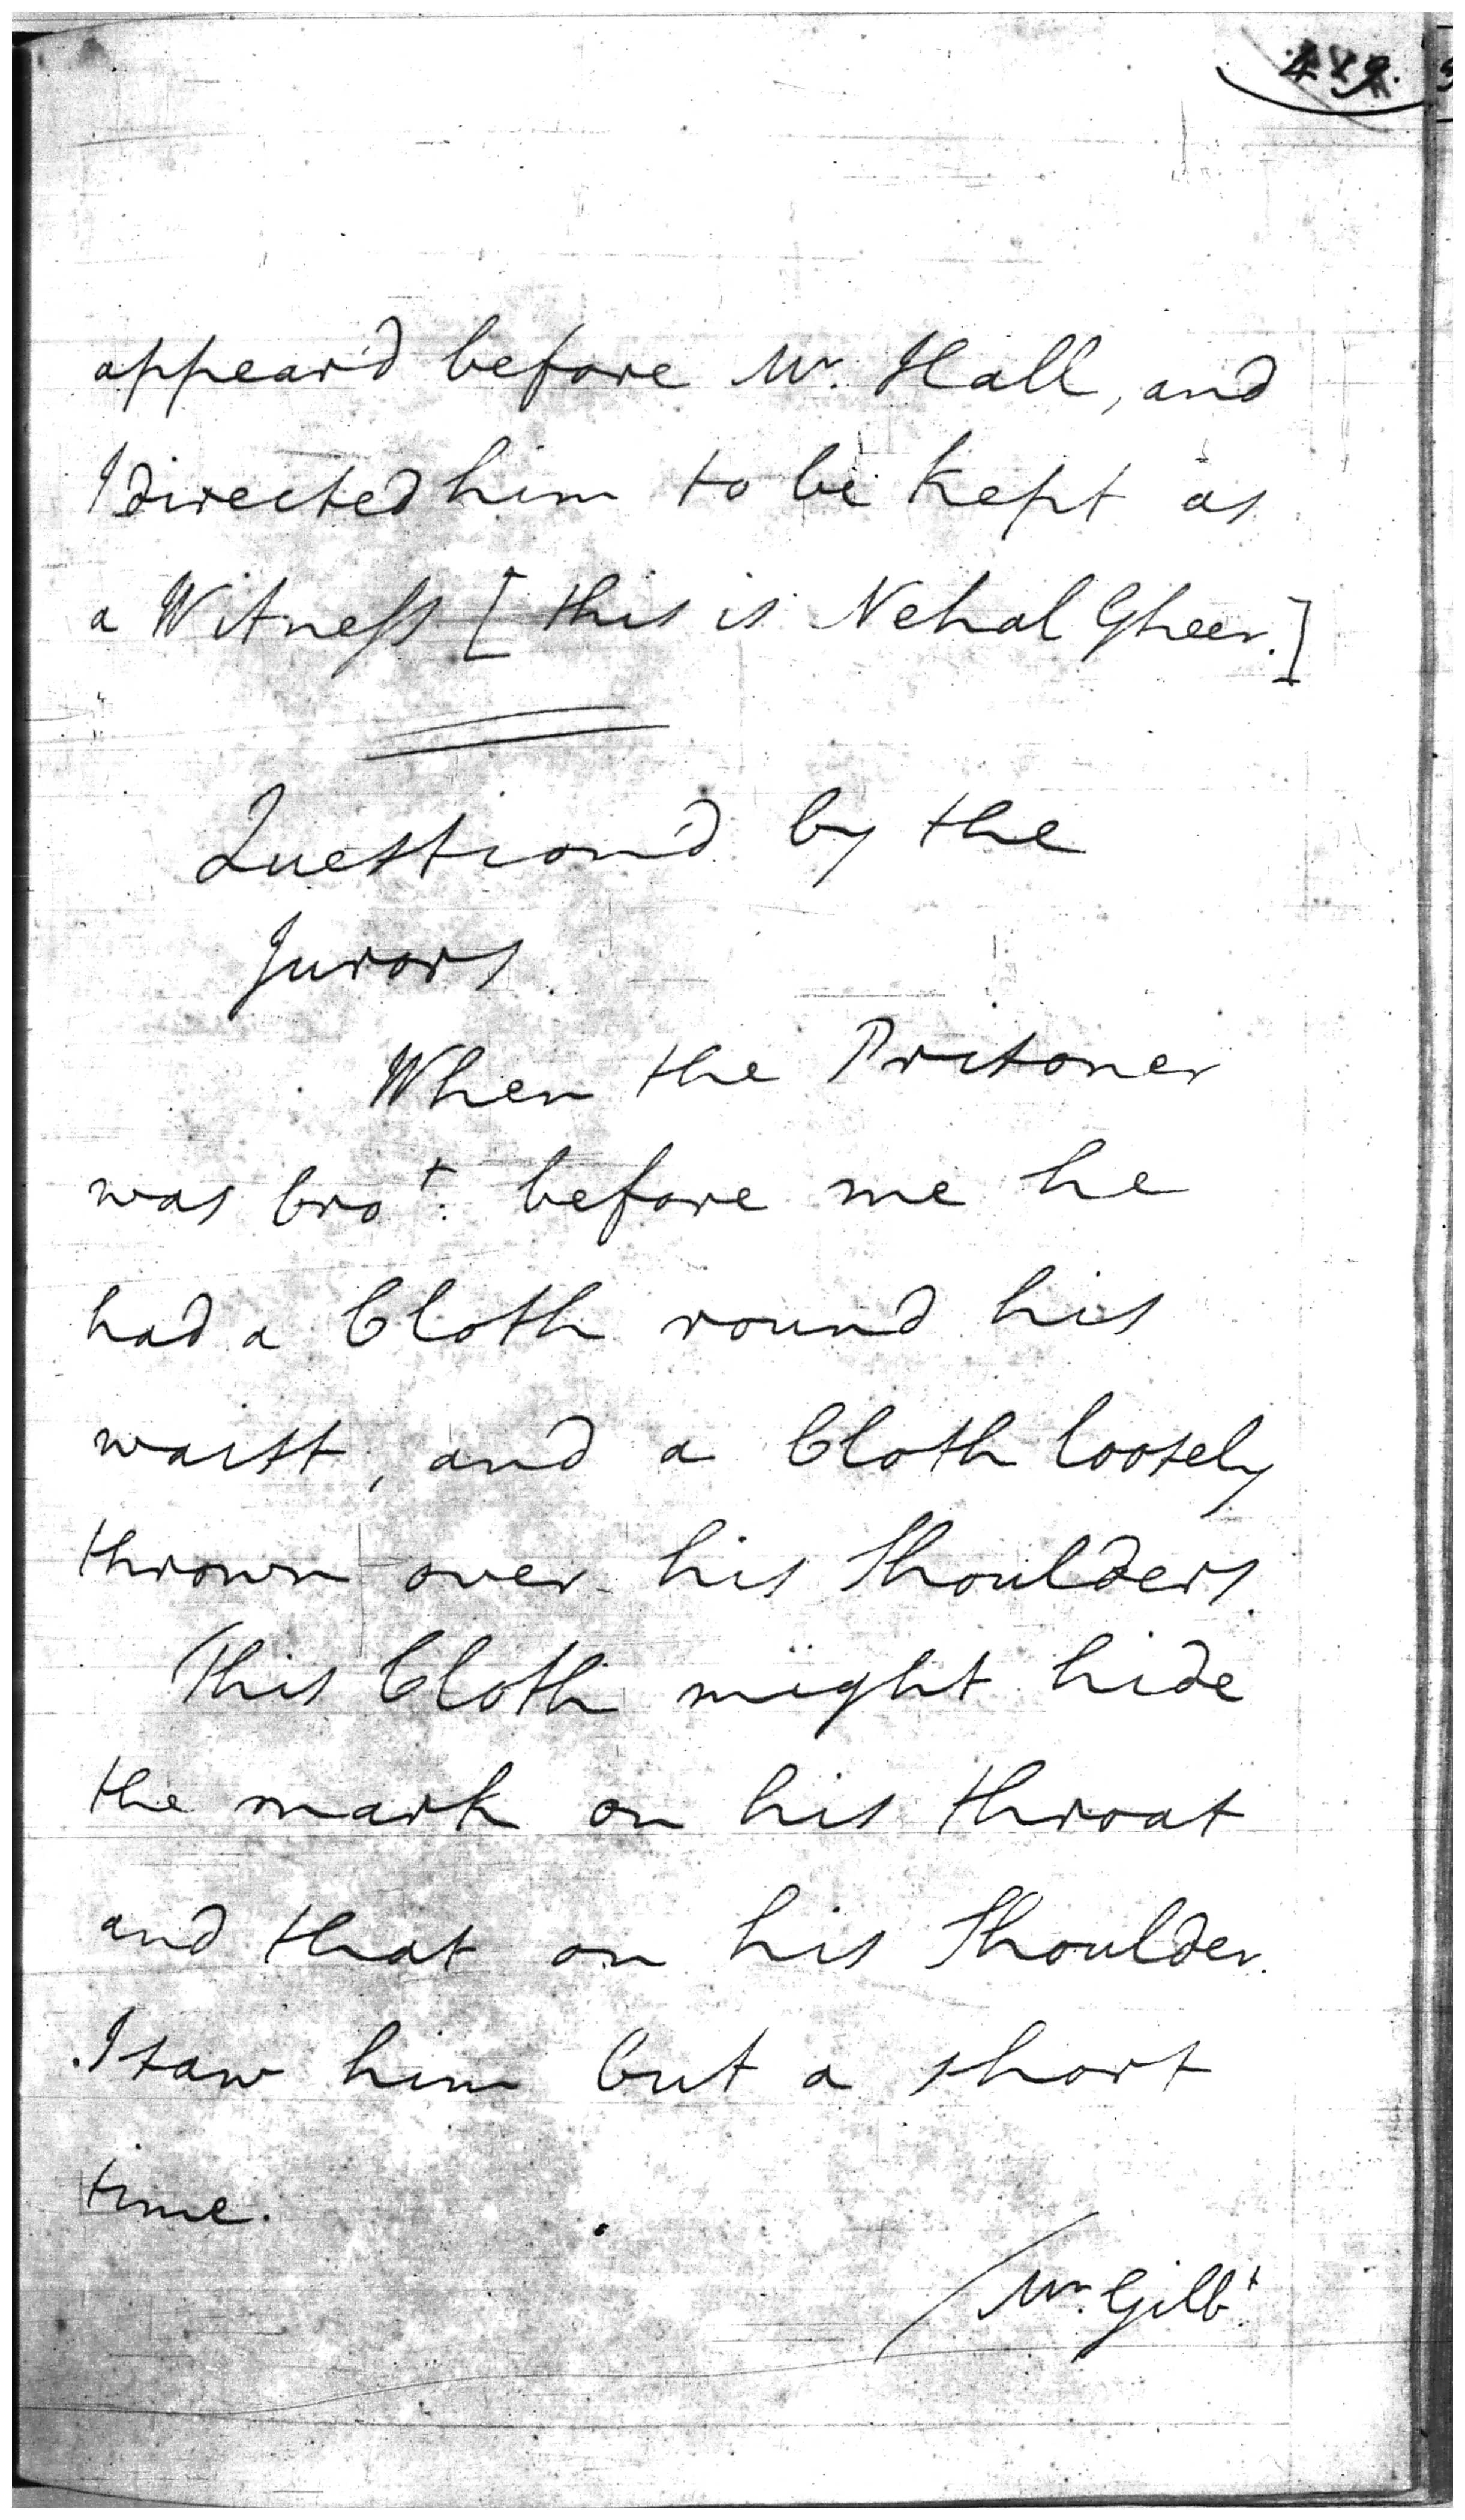 appear'd before Mr. Hall, and
I directed him to be kept as
a Witness [this is Nehal Gheer.]
Question'd by the
Jurors.
When the Prisoner
was bro.t before me he
had a Cloth round his
waist, and a Cloth loosely
thrown over his Shoulders.
This Cloth might hide
the mark on his throat
and that on his Shoulder.
I saw him but a short
time.
/Mr. Gilb.t